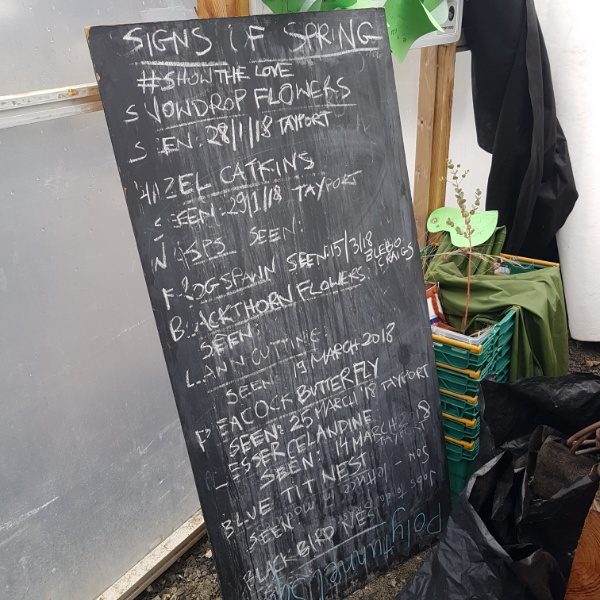 SIGNS OF SPRING
#SHOW THE LOVE
SNOWDROP FLOWERS
SEEN: 28/1/18 TAYPORT
HAZEL CATKINS
SEEN: 29/1/18 TAYPORT
WASPS SEEN:
FROGSPAWN SEEN: 15/3/18 BLEBO CRAIGS
BLACKTHORN FLOWERS
SEEN:
LAWN CUTTING
SEEN 19 MARCH 2018
PEACOCK BUTTERFLY
SEEN: 25 MARCH 18 TAYPORT
LESSER CELANDINE
SEEN: 14 MARCH 2018 TAYPORT
BLUE TIT NEST
SEEN
BLACKBIRD NEST
Polytunnel